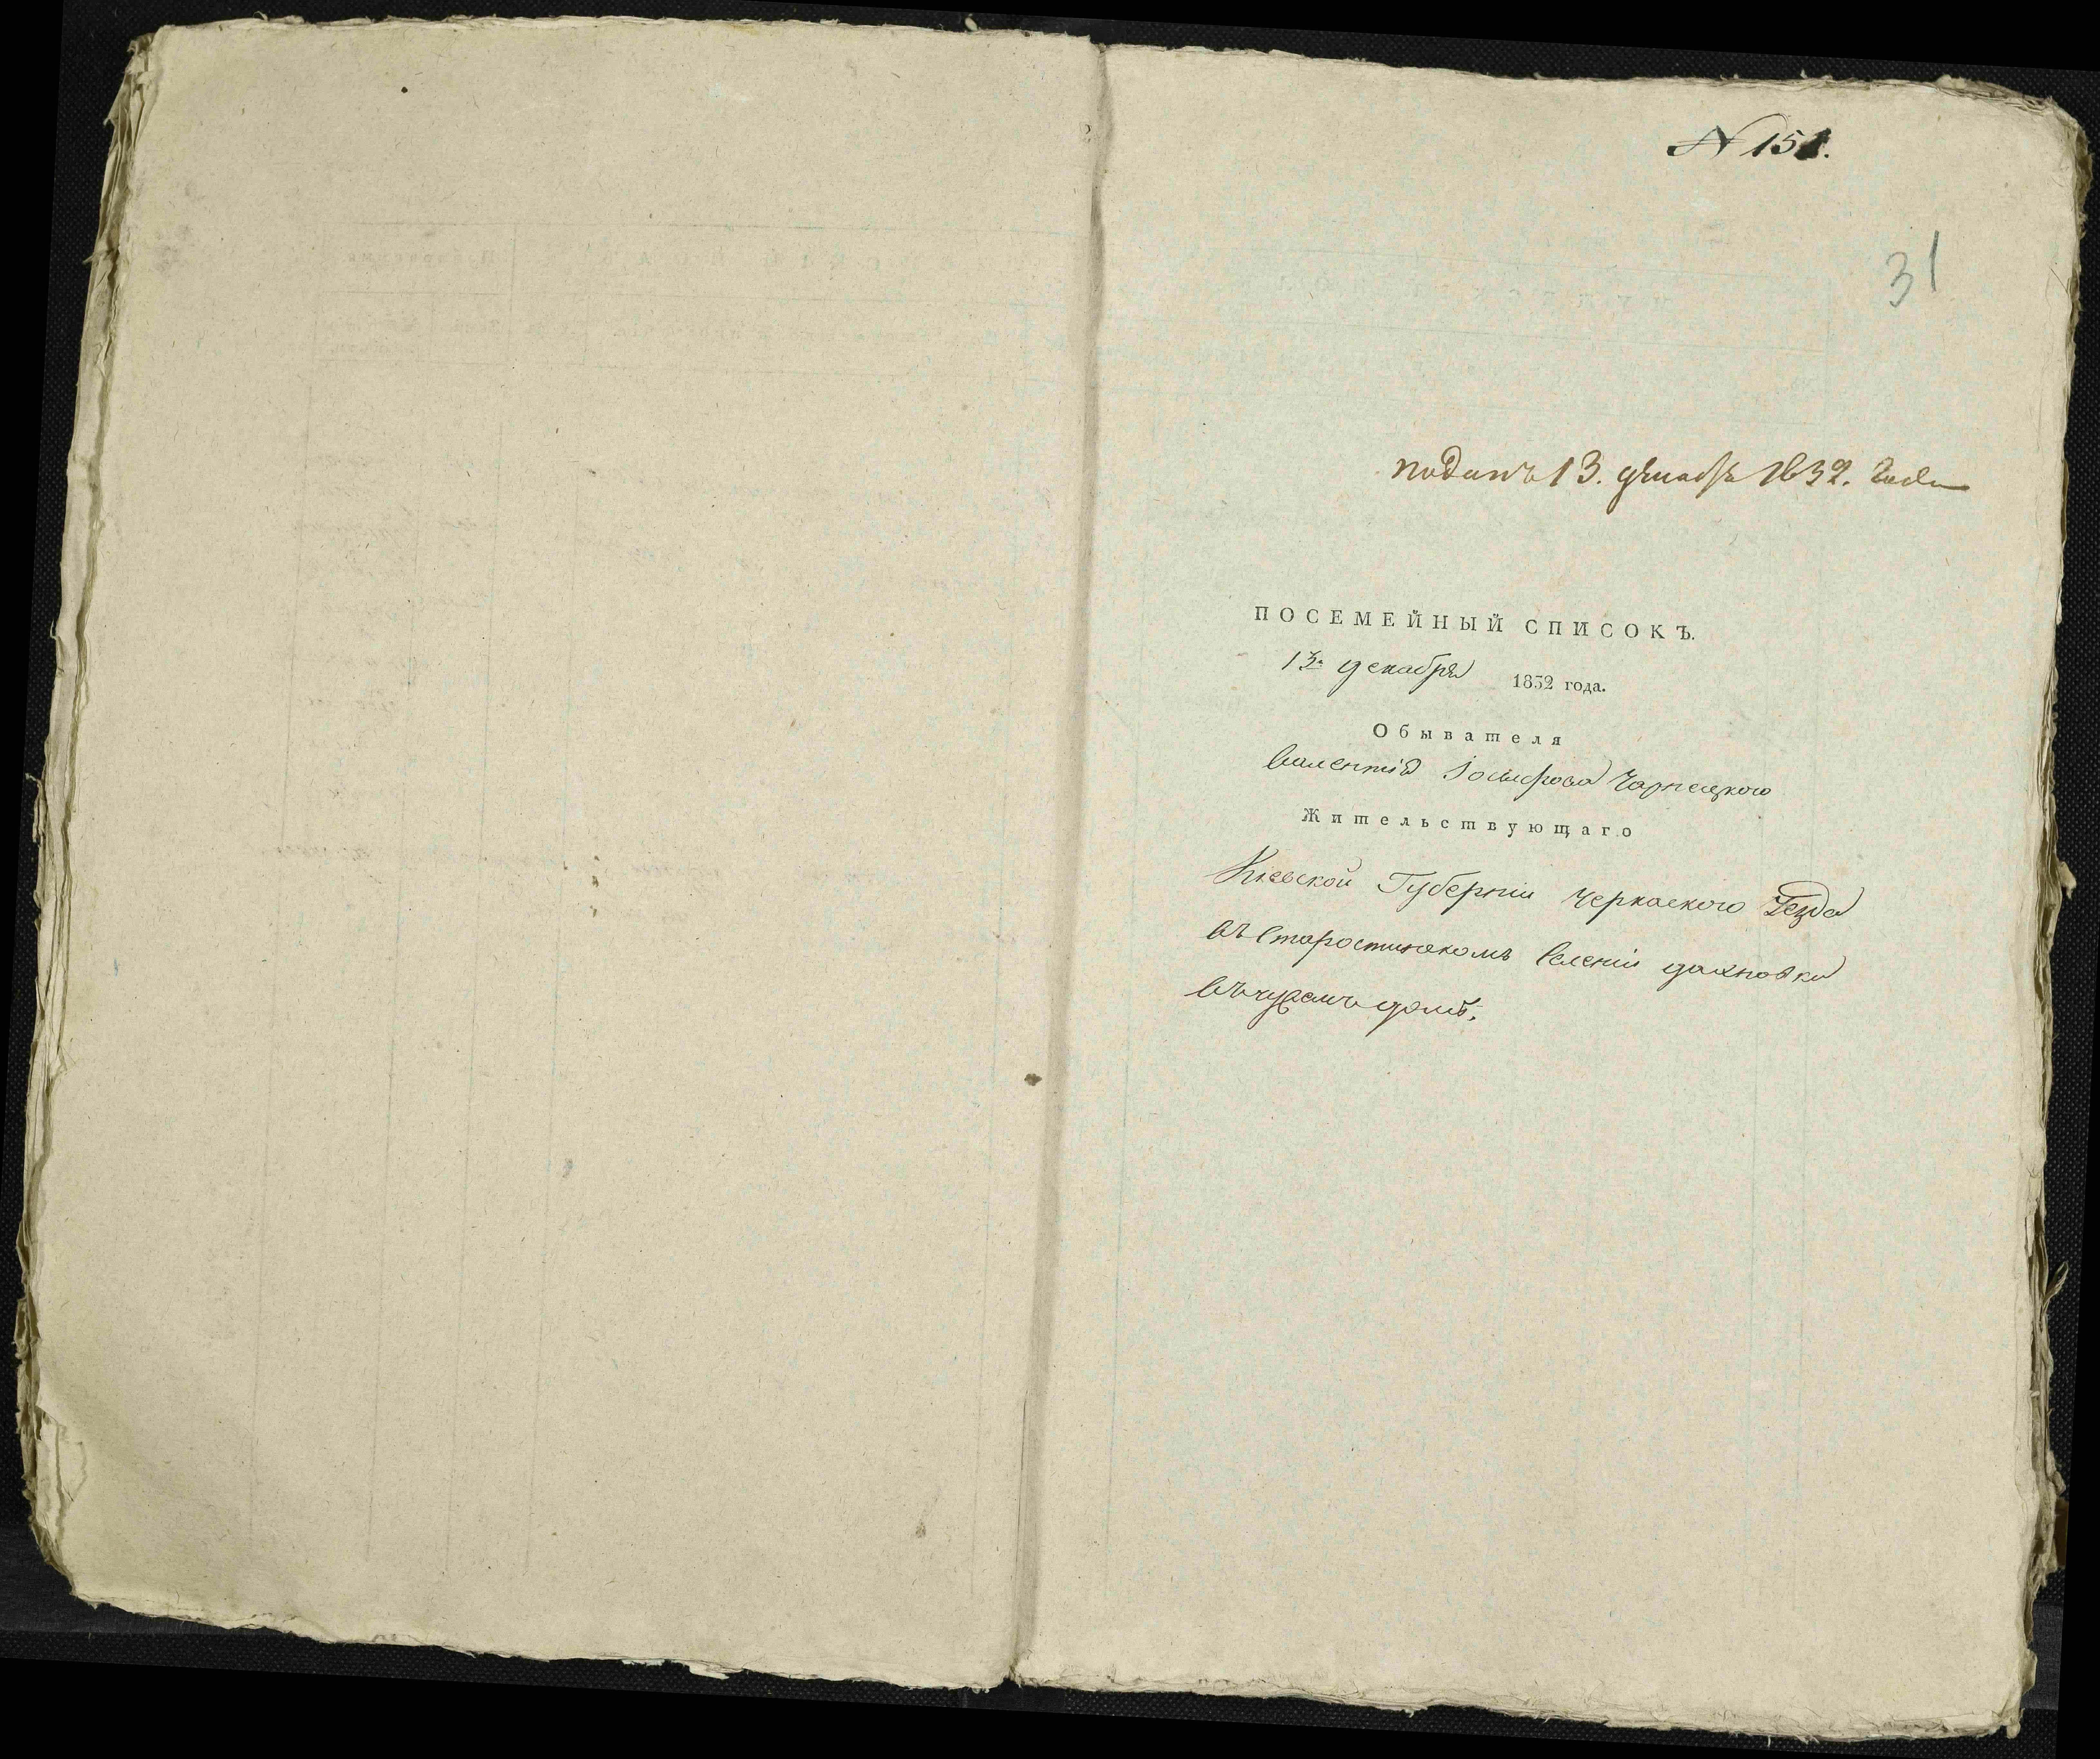 N 151.
31
поданъ 13. декабря 1832. года
ПОСЕМЕЙНЫЙ СПИСОКЪ.
13го декабря 1832 года.
Обывателя
Валентія Іосифова Чарнецкого
Жительствующаго
Кіевской Губерніи Черкаского Уезда
въ Старостинскомъ Селеніи дахновки
въ чужемъ доме.